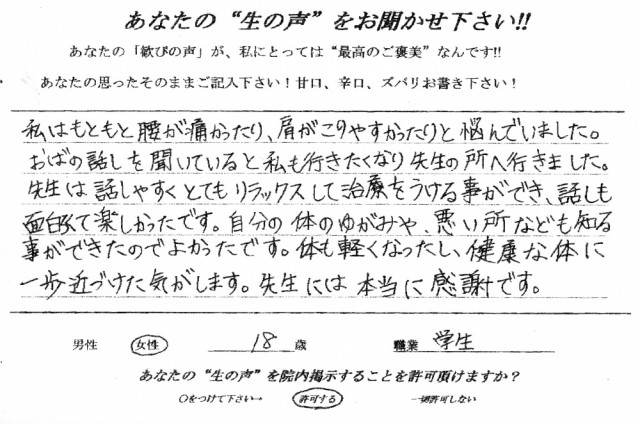 あなたの“生の声”をお聞かせ下さい!!
あなたの「歓びの声」が、私にとっては“最高のご褒美”なんです!!
あなたの思ったそのままご記入下さい！甘口、辛口、ズバリお書き下さい！
私はもともと腰が痛かったり、肩がこりやすかったりと悩んでいました。
おばの話しを聞いていると私も行きたくなり先生の所へ行きました。
先生は話しやすくとてもリラックスして治療をうける事ができ、話しも
面白くて楽しかったです。自分の体のゆがみや、悪い所なども知る
事ができたのでよかったです。体も軽くなったし、健康な体に
一歩近づけた気がします。先生には本当に感謝です。
男性 女性 18 歳 職業 学生
あなたの“生の声”を院内掲示することを許可頂けますか？
○をつけて下さい→ 許可する 一切許可しない